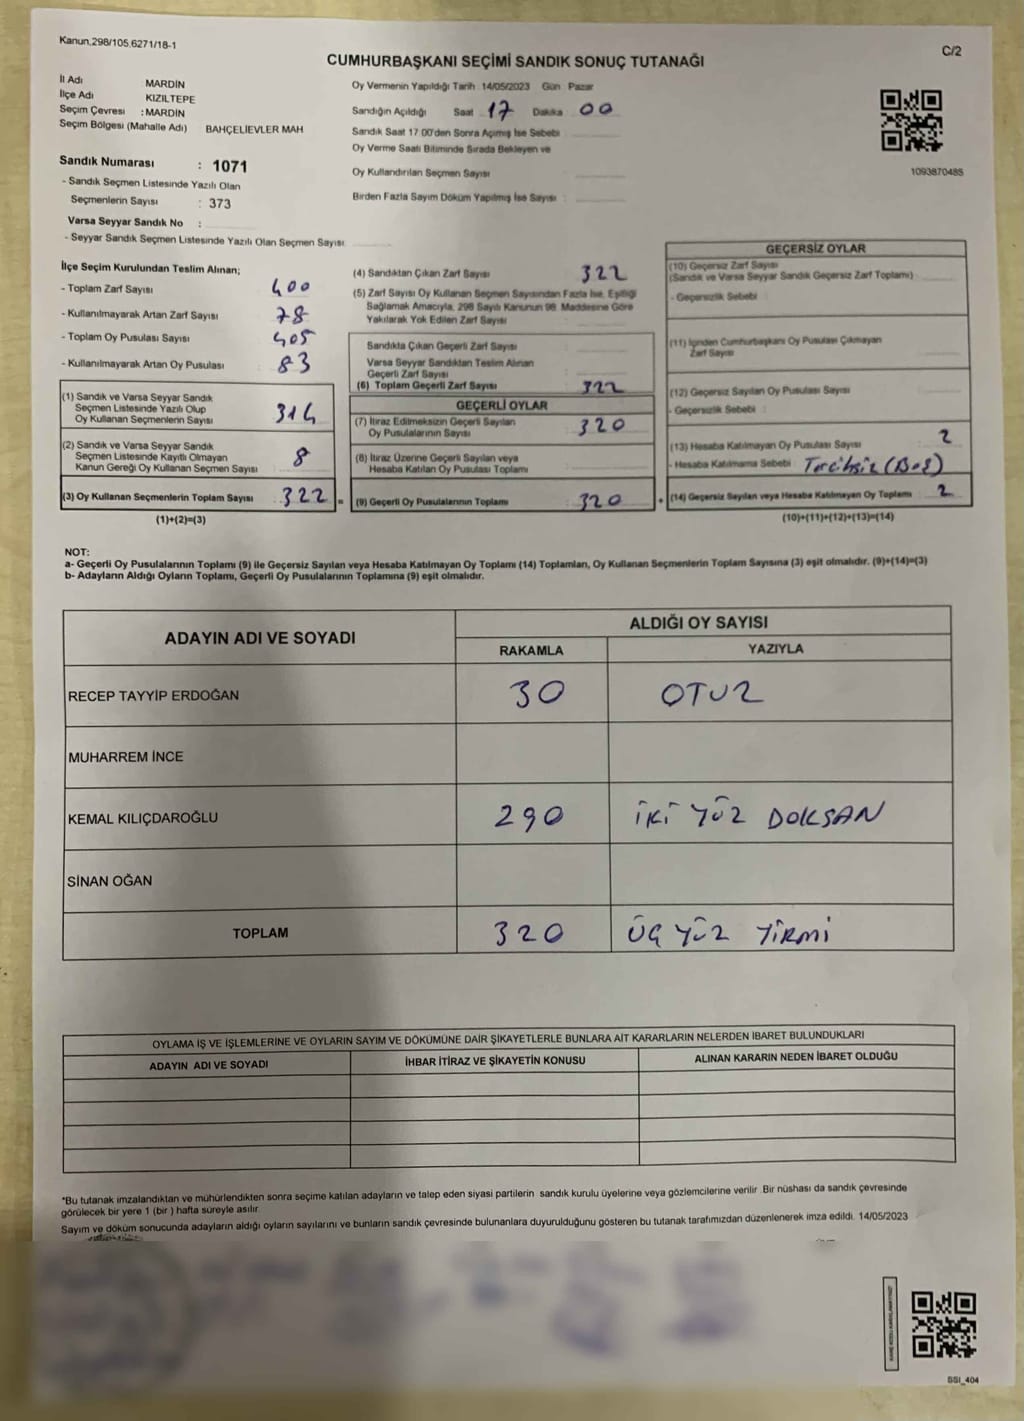 Kanun.298/105.6271/18-1
C/2
CUMHURBAŞKANI SEÇİMİ SANDIK SONUÇ TUTANAĞI
İl Adı MARDİN
İlçe Adı KIZILTEPE
Seçim Çevresi : MARDİN
Seçim Bölgesi (Mahalle Adı) BAHÇELİEVLER MAH
Sandık Numarası : 1071
- Sandık Seçmen Listesinde Yazılı Olan
Seçmenlerin Sayısı : 373
Varsa Seyyar Sandık No :
- Seyyar Sandık Seçmen Listesinde Yazılı Olan Seçmen Sayısı:
Oy Vermenin Yapıldığı Tarih : 14/05/2023 Gün Pazar
Sandığın Açıldığı Saat 17 Dakika 00
Sandık Saat 17:00'den Sonra Açımış İse Sebebi
Oy Verme Saati Bitiminde Sırada Bekleyen ve
Oy Kullandırılan Seçmen Sayısı
Birden Fazla Sayım Döküm Yapılmış İse Sayısı :
1093870485
İlçe Seçim Kurulundan Teslim Alınan;
- Toplam Zarf Sayısı 400
- Kullanılmayarak Artan Zarf Sayısı 78
- Toplam Oy Pusulası Sayısı 405
- Kullanılmayarak Artan Oy Pusulası 83
(1) Sandık ve Varsa Seyyar Sandık
Seçmen Listesinde Yazılı Olup
Oy Kullanan Seçmenlerin Sayısı 314
(2) Sandık ve Varsa Seyyar Sandık
Seçmen Listesinde Kayıtlı Olmayan
Kanun Gereği Oy Kullanan Seçmen Sayısı 8
(3) Oy Kullanan Seçmenlerin Toplam Sayısı 322 =
(1)+(2)=(3)
(4) Sandıktan Çıkan Zarf Sayısı 322
(5) Zarf Sayısı Oy Kullanan Seçmen Sayısından Fazla İse, Eşitliği
Sağlamak Amacıyla, 298 Sayılı Kanunun 98. Maddesine Göre
Yakılarak Yok Edilen Zarf Sayısı :
Sandıkta Çıkan Geçerli Zarf Sayısı
Varsa Seyyar Sandıktan Teslim Alınan
Geçerli Zarf Sayısı
(6) Toplam Geçerli Zarf Sayısı 322
GEÇERLİ OYLAR
(7) İtiraz Edilmeksizin Geçerli Sayılan
Oy Pusulalarının Sayısı 320
(8) İtiraz Üzerine Geçerli Sayılan veya
Hesaba Katılan Oy Pusulası Toplamı
(9) Geçerli Oy Pusulalarının Toplamı 320 +
GEÇERSİZ OYLAR
(10) Geçersiz Zarf Sayısı
(Sandık ve Varsa Seyyar Sandık Geçersiz Zarf Toplamı)
- Geçersizlik Sebebi
(11) İçinden Cumhurbaşkanı Oy Pusulası Çıkmayan
Zarf Sayısı
(12) Geçersiz Sayılan Oy Pusulası Sayısı
- Geçersizlik Sebebi :
(13) Hesaba Katılmayan Oy Pusulası Sayısı 2
- Hesaba Katılmama Sebebi : Tercihsiz (Boş)
(14) Geçersiz Sayılan veya Hesaba Katılmayan Oy Toplamı 2
(10)+(11)+(12)+(13)=(14)
NOT:
a- Geçerli Oy Pusulalarının Toplamı (9) ile Geçersiz Sayılan veya Hesaba Katılmayan Oy Toplamı (14) Toplamları, Oy Kullanan Seçmenlerin Toplam Sayısına (3) eşit olmalıdır. (9)+(14)=(3)
b- Adayların Aldığı Oyların Toplamı, Geçerli Oy Pusulalarının Toplamına (9) eşit olmalıdır.
ADAYIN ADI VE SOYADI
ALDIĞI OY SAYISI
RAKAMLA YAZIYLA
RECEP TAYYİP ERDOĞAN 30 OTUZ
MUHARREM İNCE
KEMAL KILIÇDAROĞLU 290 İKİ YÜZ DOKSAN
SİNAN OĞAN
TOPLAM 320 ÜÇ YÜZ YİRMİ
OYLAMA İŞ VE İŞLEMLERİNE VE OYLARIN SAYIM VE DÖKÜMÜNE DAİR ŞİKAYETLERLE BUNLARA AİT KARARLARIN NELERDEN İBARET BULUNDUKLARI
ADAYIN ADI VE SOYADI İHBAR İTİRAZ VE ŞİKAYETİN KONUSU ALINAN KARARIN NEDEN İBARET OLDUĞU
*Bu tutanak imzalandıktan ve mühürlendikten sonra seçime katılan adayların ve talep eden siyasi partilerin sandık kurulu üyelerine veya gözlemcilerine verilir. Bir nüshası da sandık çevresinde
görülecek bir yere 1 (bir ) hafta süreyle asılır.
Sayım ve döküm sonucunda adayların aldığı oyların sayılarını ve bunların sandık çevresinde bulunanlara duyurulduğunu gösteren bu tutanak tarafımızdan düzenlenerek imza edildi. 14/05/2023
SSI_404